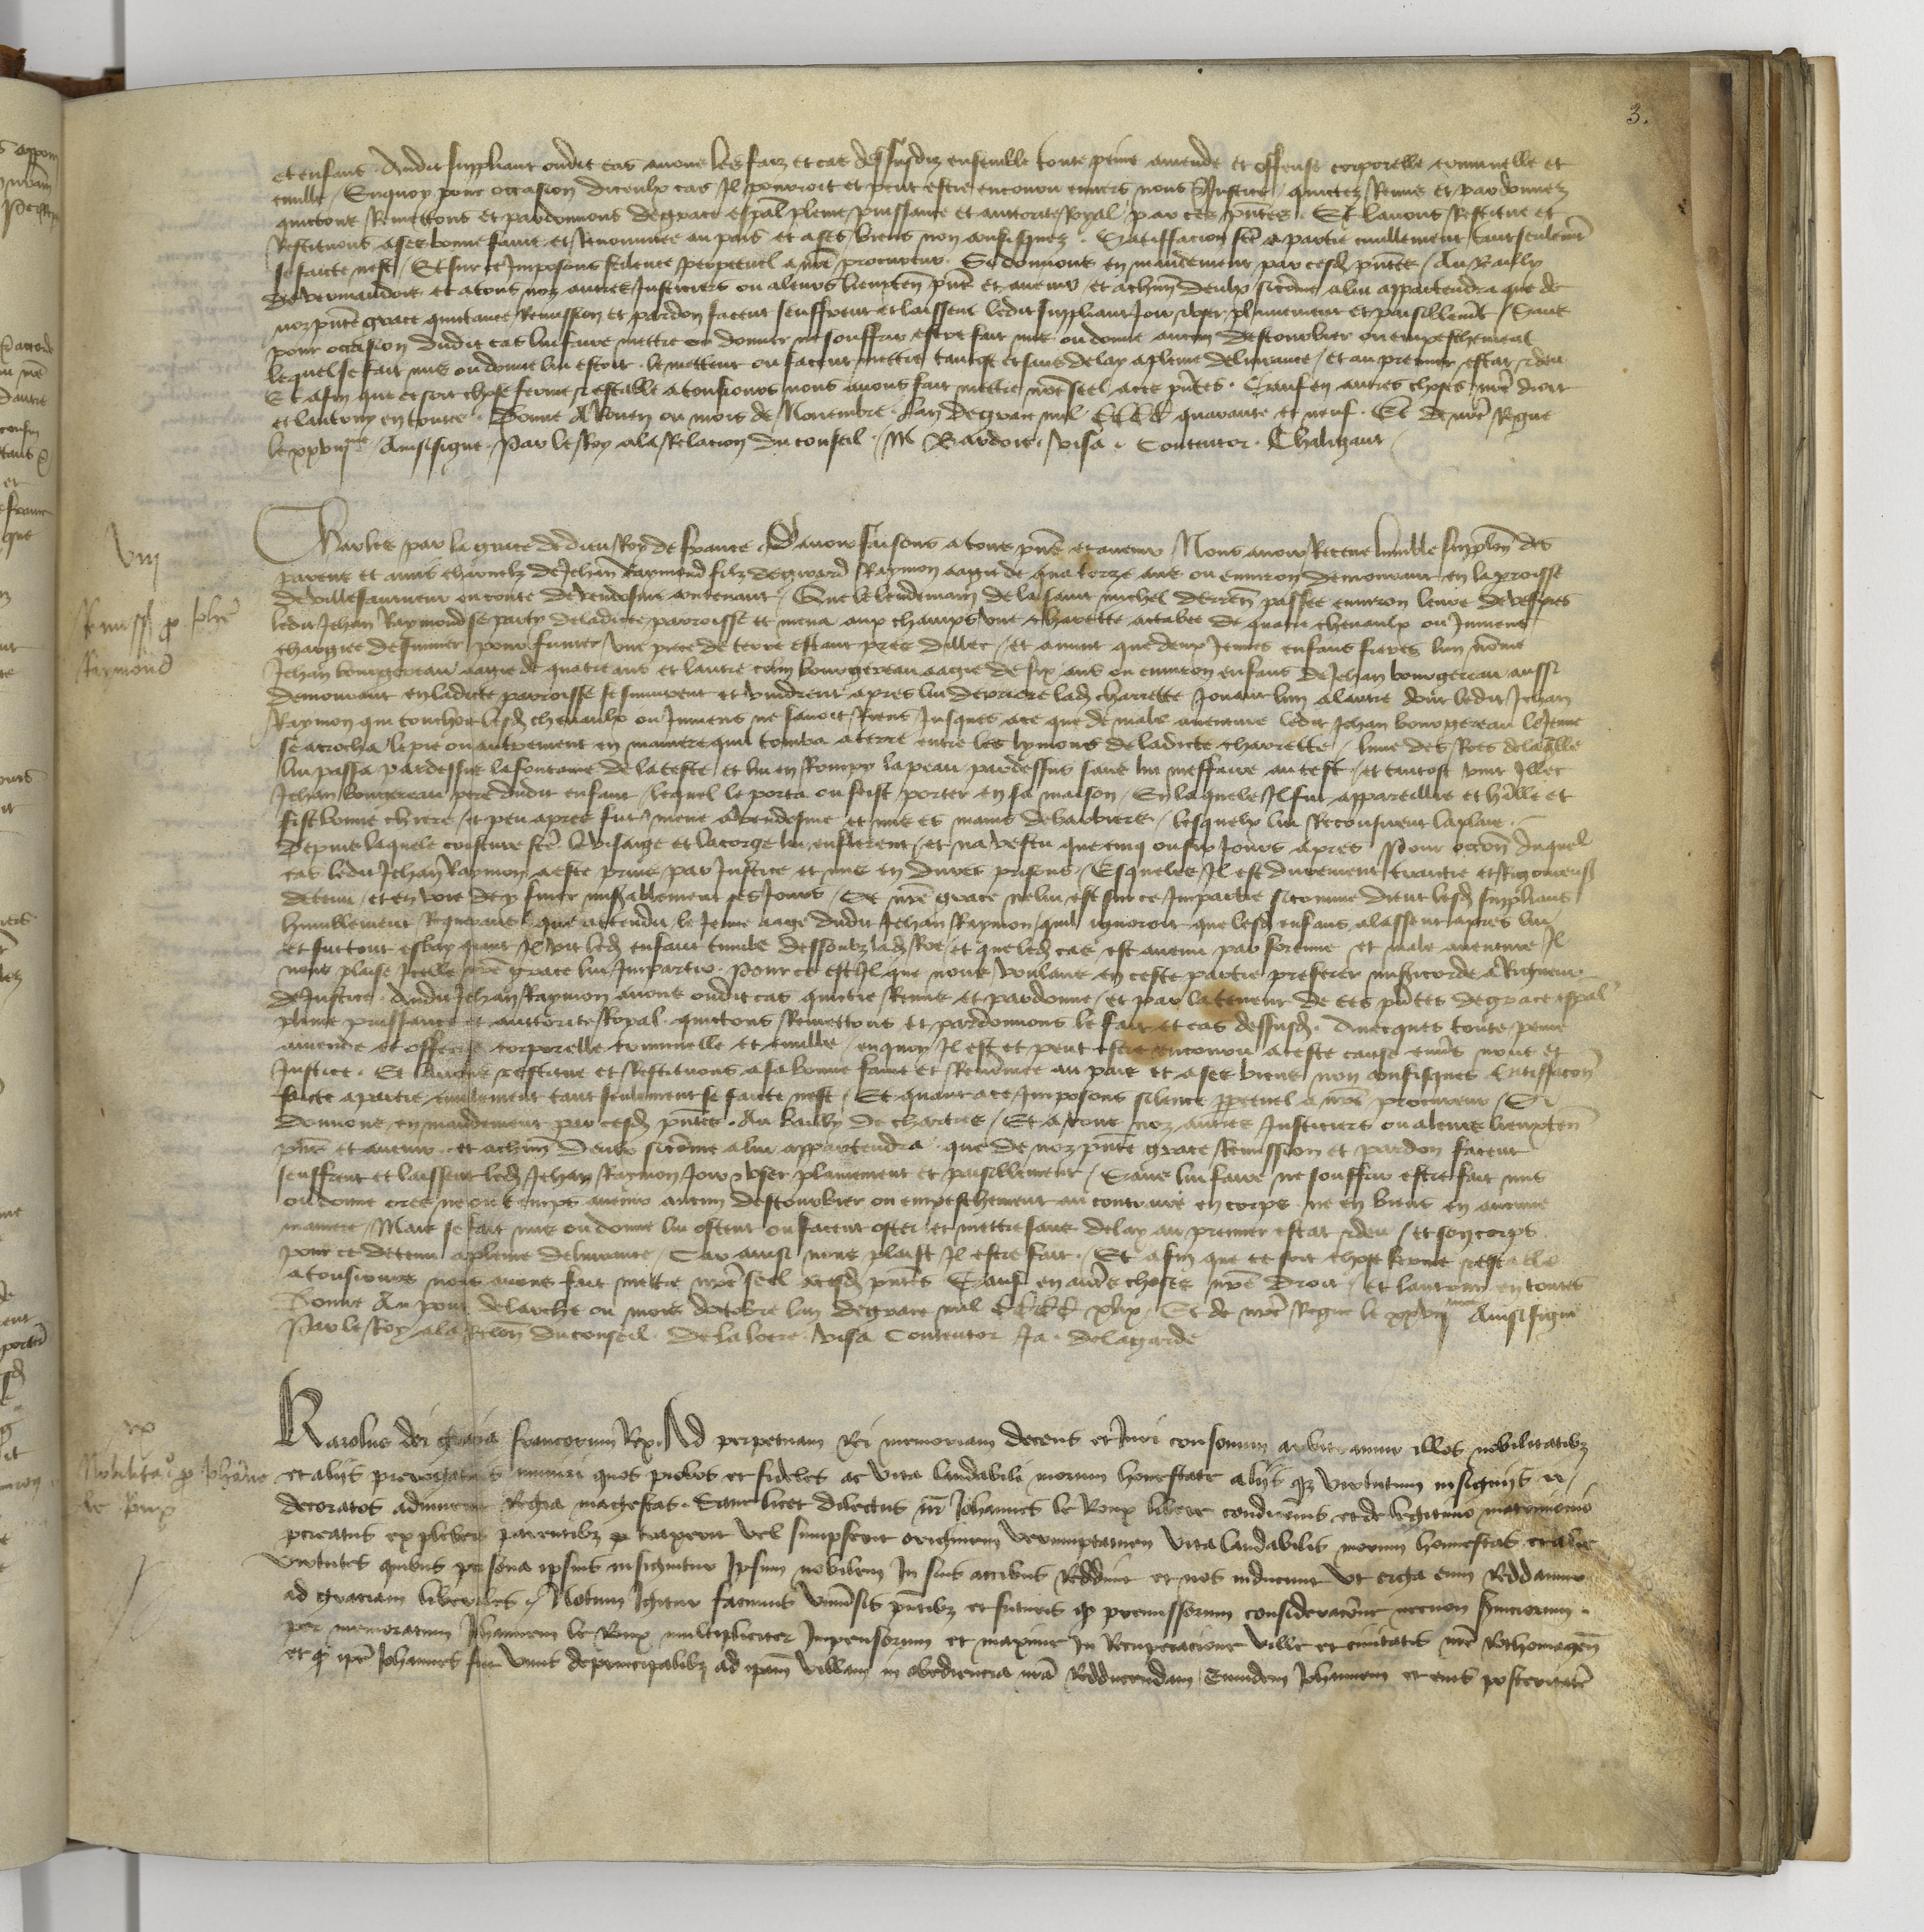 3.
et enfans. Audit suppliant oudit cas avons les faiz et cas dessusdiz ensemble toute peine amende et offense corporelle criminelle et
civille / Enquoy pour occasion diceulx cas Il pourroit et peut estre encouru envers nous Justice / quictez Remis et pardonnez
quictons Remettons et pardonnons de grace espal plaine puissance et auctorite Royal par ces pntes. Et lavons Restitue et
Restituons a ses bonne fame et Renommee au pais et a ses biens non confisquez. Satisfacion fcte a partie civillement tant seulement
se faicte nest / Et sur ce Imposons scilence perpetuel a nre procureur. Si donnons en mandement par cesd pntes / Au Bailly
de vermandois et a tous noz autres Justiciers ou a leurs lieuxten pns et avenir et a chun deulx sicome a lui appartendra que de
noz pnte grace quictance Remission et pardon facent seuffrent et laissent ledit suppliant Joir user plainement et paisiblement / Sans
pour occasion dudit cas lui faire mettre ou donner ne souffrir estre fait mis ou donne aucun destourbier ou empeschement
lequel se fait mis ou donne lui estoit. le mettent ou facent mettre tantost et sans delay a pleine delivrance / et au premier estat deu
Et afin que ce soit chose ferme et estable a tousiours nous avons fait mettre nre seel a ces pntes. Sauf en autres choses nre droit
et lautruy en toutes. Donne A Rouen ou mois de Novembre. Lan de grace mil CCCC quarante et neuf. Et de nre Regne
le xxviij me Ainsi signe. Par le Roy a la Relacion du conseil. M Bardois. Visa. Contentor. Chaligaut
viij
Remiss p Johe
Raymond
Charles par la grace de dieu Roy de france. Savoir faisons a tous pns et avenir Nous avoir Receue lumble supplon des
parens et amis charnelz de Jehan Raymond filz de girard Raymon aagie de quatorze ans ou environ demourant en la proisse
de villesauneur ou conte de vendosme contenant / Que le lendemain de la saint michel derren passee environ leure de vespres
ledit Jehan Raymond se party de ladicte parroisse et mena aux champs une charette actelee de quatre chevaulx ou Jumens
chargiee de fumier pour fumer une piece de terre estant pres dillec / et avint que deux Jeunes enfans freres lun nome
Jehan bourgereau aagie de quatre ans et lautre colin bourgereau aagie de six ans ou environ enfans de Jehan bourgereau aussi
demourant en ladicte parroisse se suivirent et vindrent apres lui derriere lad charrette Jouant lun a lautre dont ledit Jehan
Raymon qui touchoit lesd chevaulx ou Jumens ne savoit Riens Jusques a ce que de male aventure ledit Jehan bourgereau le Jeune
se acrocha le pie ou autrement en maniere quil tomba a terre entre les lymons de ladicte charrette / lune des Roes delaquelle
lui passa pardessus la fontaine de la teste et lui en Rompy la peau pardessus sans lui meffaire au test / et tantost vint Illec
Jehan bourgereau pere dudit enfant / lequel le porta ou feist porter en sa maison / En laquele Il fut appareillie et habille et
fist bonne chiere / et peu apres fut mene a vendosme et mis es mains de barbiers / lesquelx lui Recousirent la plaie.
Depuis laquele cousture fcte le visaige et la gorge lui enflerent / et na vescu que cinq ou six Jours apres Pour occon duquel
cas ledit Jehan Raymon a este prins par Justice et mis en dures prisons / Esqueles Il est durement traictie et Rigoureus
detenu / et en voie dey finer miserablement ses Jours / Se nre grace ne lui est sur ce Impartie sicomme dient lesd supplians
humblement Requerans que attendu le Jeune aage dudit Jehan Raymon / quil ignoroit que lesd enfans alassent apres lui
et fut tout esbay quant Il vit led enfant tumbe dessoubz lad Roe / et que led cas est avenu par fortune et male aventure Il
nous plaise Icelle nre grace lui Impartir. Pour ce est Il que nous voulans en ceste partie preferer misericorde a Rigueur
de Justice. Audit Jehan Raymon avons oudit cas quictie Remis et pardonne / et par la teneur de ces pntes de grace espal
plaine puissance et auctorite Royal. quictons Remettons et pardonnons le fait et cas dessusd. Avecques toute peine
amende et offense corporelle criminelle et civille / enquoy Il est et peut estre encouru a ceste cause envrs nous et
Justice. Et lavons restitue et Restituons a sa bonne fame et Renomee au pais et a ses biens non confisquez Satisfacion
faicte a partie civilement tant seulement se faicte nest / Et quant a ce Imposons silence ppetuel a nre procureur / Si
donnons en mandement par cesd pntes. Au bailly de chartres / Et a tous noz autres Justiciers ou a leurs lieuxten
pns et avenir et a chun deulx sicome a lui appartendra que de noz pnte grace Remission et pardon facent
seuffrent et laissent led Jehan Raymon Joir user plainement et paisiblement / Sans lui faire ne souffrir estre fait mis
ou donne ores ne ou temps avenir aucun destourbier ou empeschement au contraire en corps ne en biens en aucune
maniere / Mais se fait mis ou donne lui ostent ou facent oster et mettre sans delay au premier estat deu / et son corps
pour ce detenu a pleine delivrance / Car ainsi nous plaist Il estre fait. Et afin que ce soit chose ferme estable
a tousiours nous avons fait mettre nre seel a cesd pntes Sauf en autres choses nre droit / et lautruy en toutes
Donne Au pont de larche ou mois doctobre lan de grace mil CCCC xlix. Et de nre Regne le xxvij me Ainsi signe
Par le Roy a la Relon du conseil. De la loere. Visa Contentor Ja. de la garde
ix
Nobilitato p Johanne
le Roux
Karolus dei gracia francorum Rex. Ad perpetuam Rei memoriam decens et Juri consonum arbitramur illos nobilitatibz
et aliis prerogativis muniri quos probos et fideles ac vita laudabili morum honestate aliisqz virtutum insigniis
decoratos adinvenit Regia magestas. Sane licet dilectus nr Johannes le Roux libere condicionis et de legitimo matrimonio
pcreatus ex plebeis parentibz traxerit vel sumpserit originem verumptamen vita laudabilis morum honestas et alie
virtutes quibus persona ipsius insignitur Ipsum nobilem In suis actibus Reddunt et nos inducunt ut erga eum Reddamur
ad graciam liberales. Notum Igitur facimus universis pntibz et futuris qd premissorum consideracione necnon serviciorum
per memoratum Johannem le Roux multipliciter Impensorum et maxime In Recuperacione ville et civitatis nre Rothomagen
et qd ipe Johannes fuit unus de principalibz ad ipam villam in obediencia nra Reducendam / Eumdem Johannem et eius posteritate